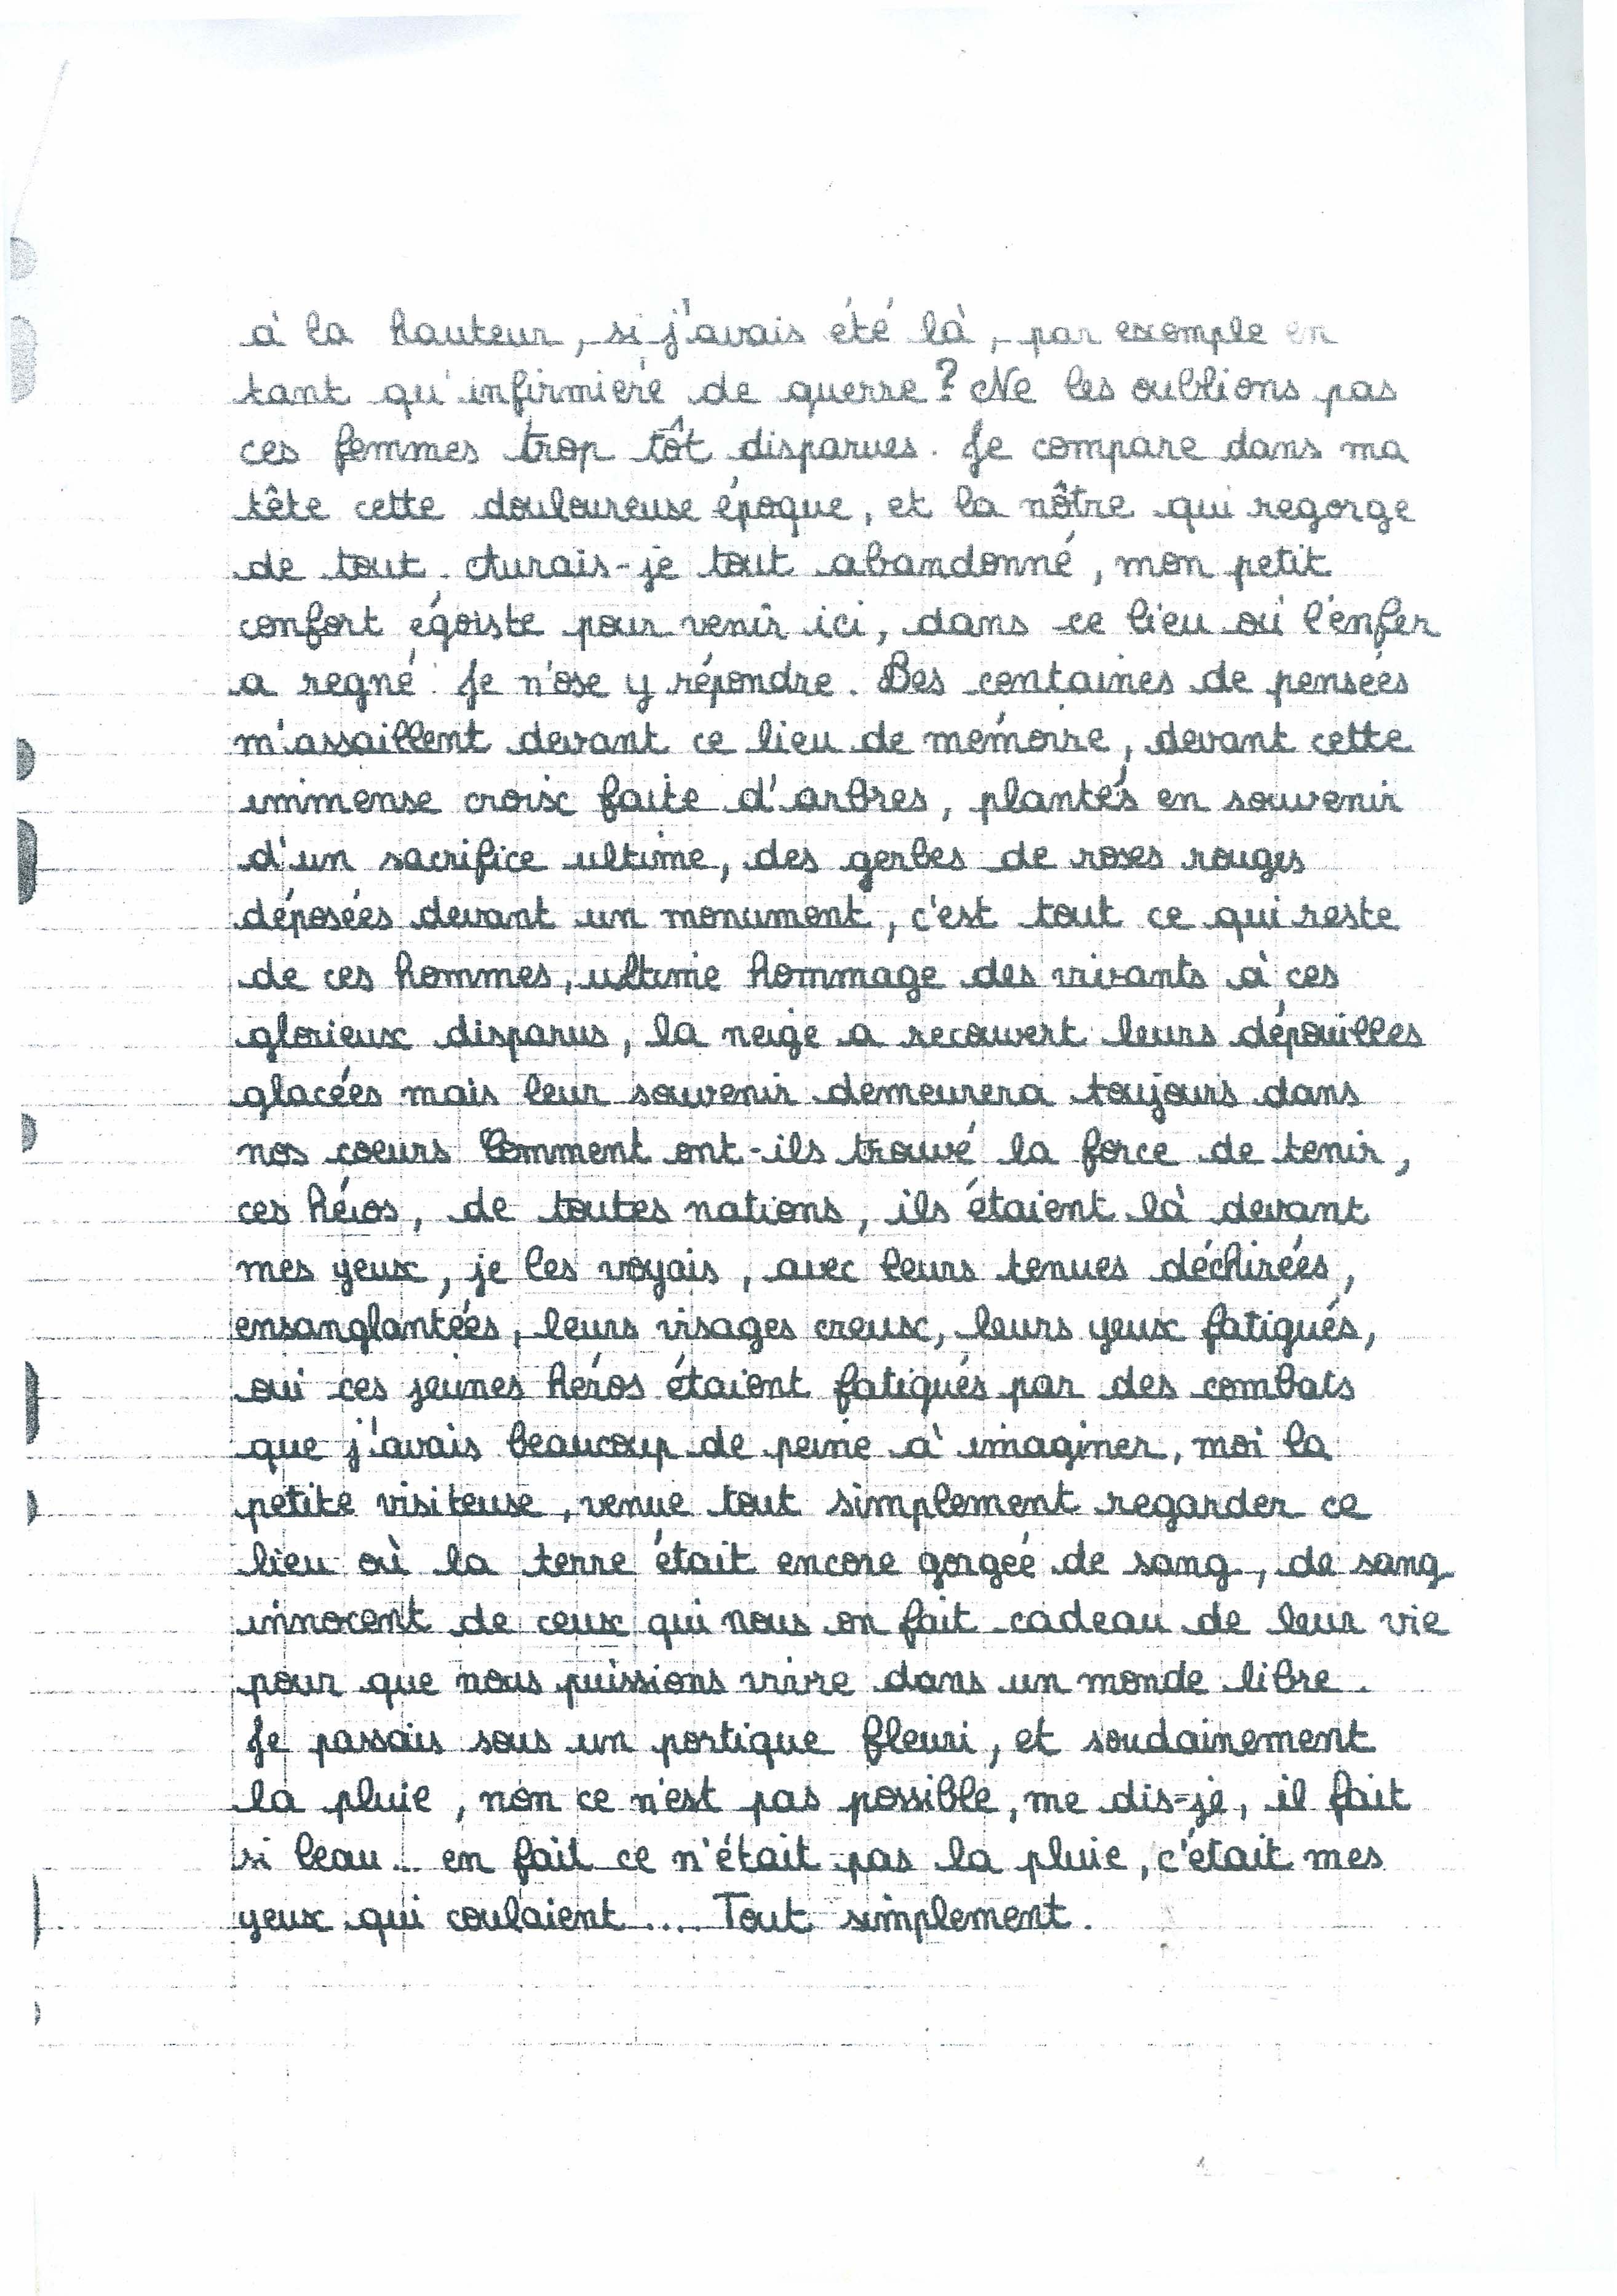 à la hauteur, si j'avais été là, par exemple en
tant qu'infirmière de guerre? Ne les oublions pas
ces femmes trop tôt disparues. Je compare dans ma
tête cette douloureuse époque, et la nôtre qui regorge
de tout. Aurais-je tout abandonné, mon petit
confort égoïste pour venir ici, dans ce lieu où l'enfer
a regné. Je n'ose y répondre. Des centaines de pensées
m'assaillent devant ce lieu de mémoire, devant cette
immense croix faite d'arbres, plantés en souvenir
d'un sacrifice ultime, des gerbes de roses rouges
déposées devant un monument, c'est tout ce qui reste
de ces hommes, ultime hommage des vivants à ces
glorieux disparus, la neige a recouvert leurs dépouilles
glacées mais leur souvenir demeurera toujours dans
nos coeurs Comment ont-ils trouvé la force de tenir,
ces héros, de toutes nations, ils étaient là devant
mes yeux, je les voyais, avec leurs tenues déchirées,
ensanglantées, leurs visages creux, leurs yeux fatigués,
oui ces jeunes héros étaient fatigués par des combats
que j'avais beaucoup de peine à imaginer, moi la
petite visiteuse, venue tout simplement regarder ce
lieu où la terre était encore gorgée de sang, de sang
innocent de ceux qui nous on fait cadeau de leur vie
pour que nous puissions vivre dans un monde libre.
Je passais sous un portique fleuri, et soudainement
la pluie, non ce n'est pas possible, me dis-je, il fait
si beau... en fait ce n'était pas la pluie, c'était mes
yeux qui coulaient.... Tout simplement.